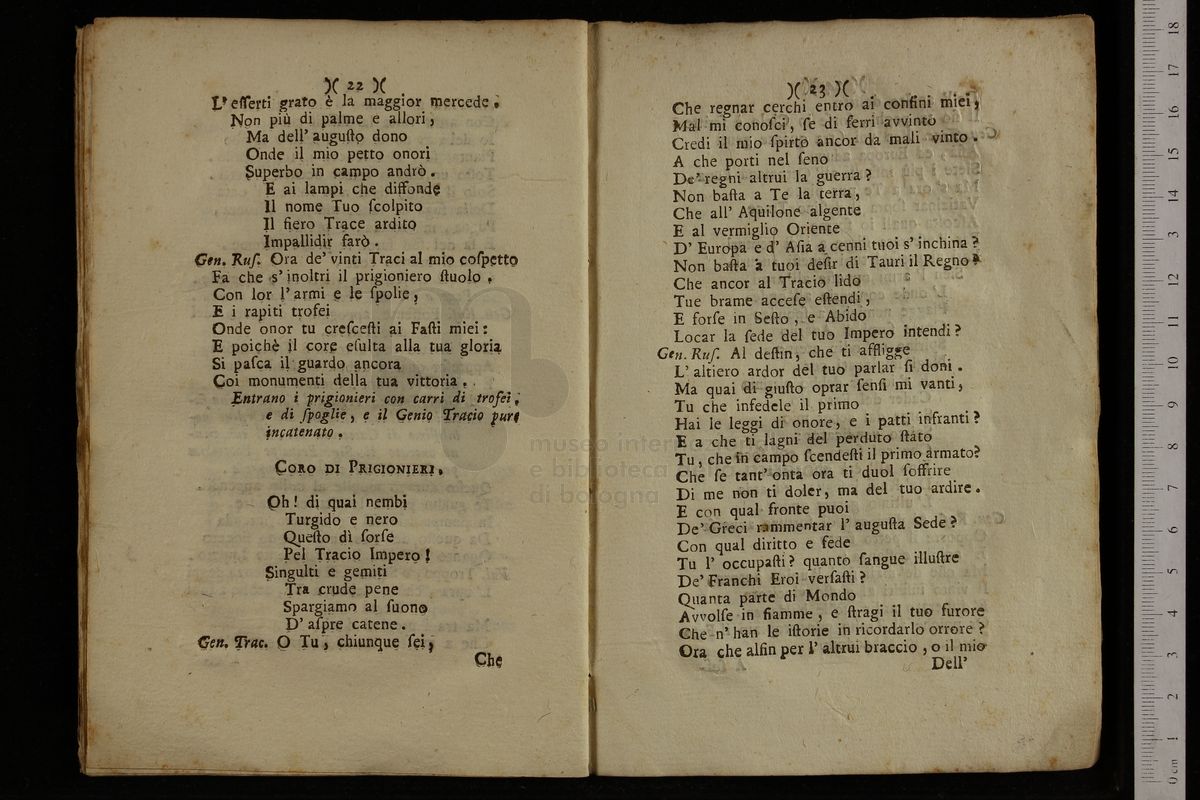 )( 22 )(
L' eſſerti grato è la maggior mercede.
Non più di palme e allori,
Ma dell' auguſto dono
Onde il mio petto onori
Superbo in campo andrò.
E ai lampi che diffonde
Il nome Tuo ſcolpito
Il fiero Trace ardito
Impallidir farò.
Gen. Ruſ. Ora de' vinti Traci al mio coſpetto
Fa che s' inoltri il prigioniero ſtuolo.
Con lor l' armi e le ſpolie,
E i rapiti trofei
Onde onor tu creſceſti ai Faſti miei:
E poichè il core eſulta alla tua gloria
Si paſca il guardo ancora
Coi monumenti della tua vittoria.
Entrano i prigionieri con carri di trofei,
e di ſpoglie, e il Genio Tracio pure
incatenato.
CORO DI PRIGIONIERI.
Oh! di quai nembi
Turgido e nero
Queſto dì ſorſe
Pel Tracio Impero!
Singulti e gemiti
Tra crude pene
Spargiamo al ſuono
D' aſpre catene.
Gen. Trac. O Tu, chiunque ſei,
Che
)( 23 )(
Che regnar cerchi entro ai confini miei,
Mal mi conoſci, ſe di ferri avvinto
Credi il mio ſpirto ancor da mali vinto.
A che porti nel ſeno
De' regni altrui la guerra?
Non baſta a Te la terra,
Che all' Aquilone algente
E al vermiglio Oriente
D' Europa e d' Aſia a cenni tuoi s' inchina?
Non baſta a tuoi deſir di Tauri il Regno?
Che ancor al Tracio lido
Tue brame acceſe eſtendi,
E forſe in Seſto, e Abido
Locar la ſede del tuo Impero intendi?
Gen. Ruſ. Al deſtin, che ti affligge
L' altiero ardor del tuo parlar ſi doni.
Ma quai di giuſto oprar ſenſi mi vanti,
Tu che infedele il primo
Hai le leggi di onore, e i patti infranti?
E a che ti lagni del perduto ſtato
Tu, che in campo ſcendeſti il primo armato?
Che ſe tant' onta ora ti duol ſoffrire
Di me non ti doler, ma del tuo ardire.
E con qual fronte puoi
De' Greci rammentar l' auguſta Sede?
Con qual diritto e fede
Tu l' occupaſti? quanto ſangue illuſtre
De' Franchi Eroi verſaſti?
Quanta parte di Mondo
Avvolſe in fiamme, e ſtragi il tuo furore
Che n' han le iſtorie in ricordarlo orrore?
Ora che alfin per l' altrui braccio, o il mio
Dell'
museo inter
e biblioteca
di bologna
0 cm 1 2 3 4 5 6 7 8 9 10 11 12 13 14 15 16 17 18